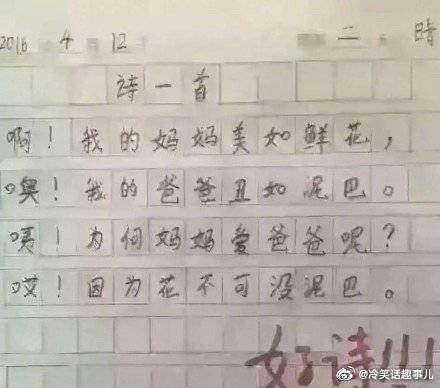 2016 4 12 二 時
诗一首
啊！我的妈妈美如鲜花，
噢！我的爸爸丑如泥巴。
咦！为何妈妈爱爸爸呢？
哎！因为花不可没泥巴。
好诗!!!
@冷笑话趣事儿